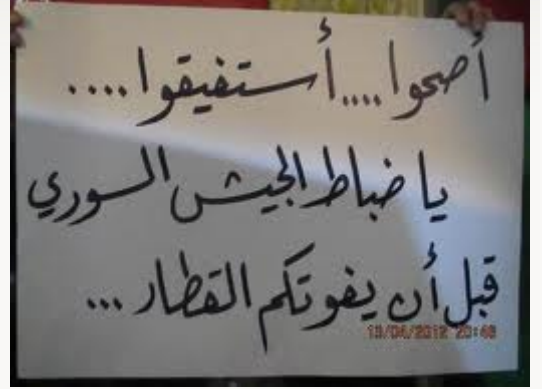 أصحوا....أستفيقوا....
يا ضباط الجيش السوري
قبل أن يفوتكم القطار...
19/04/2012 20:48